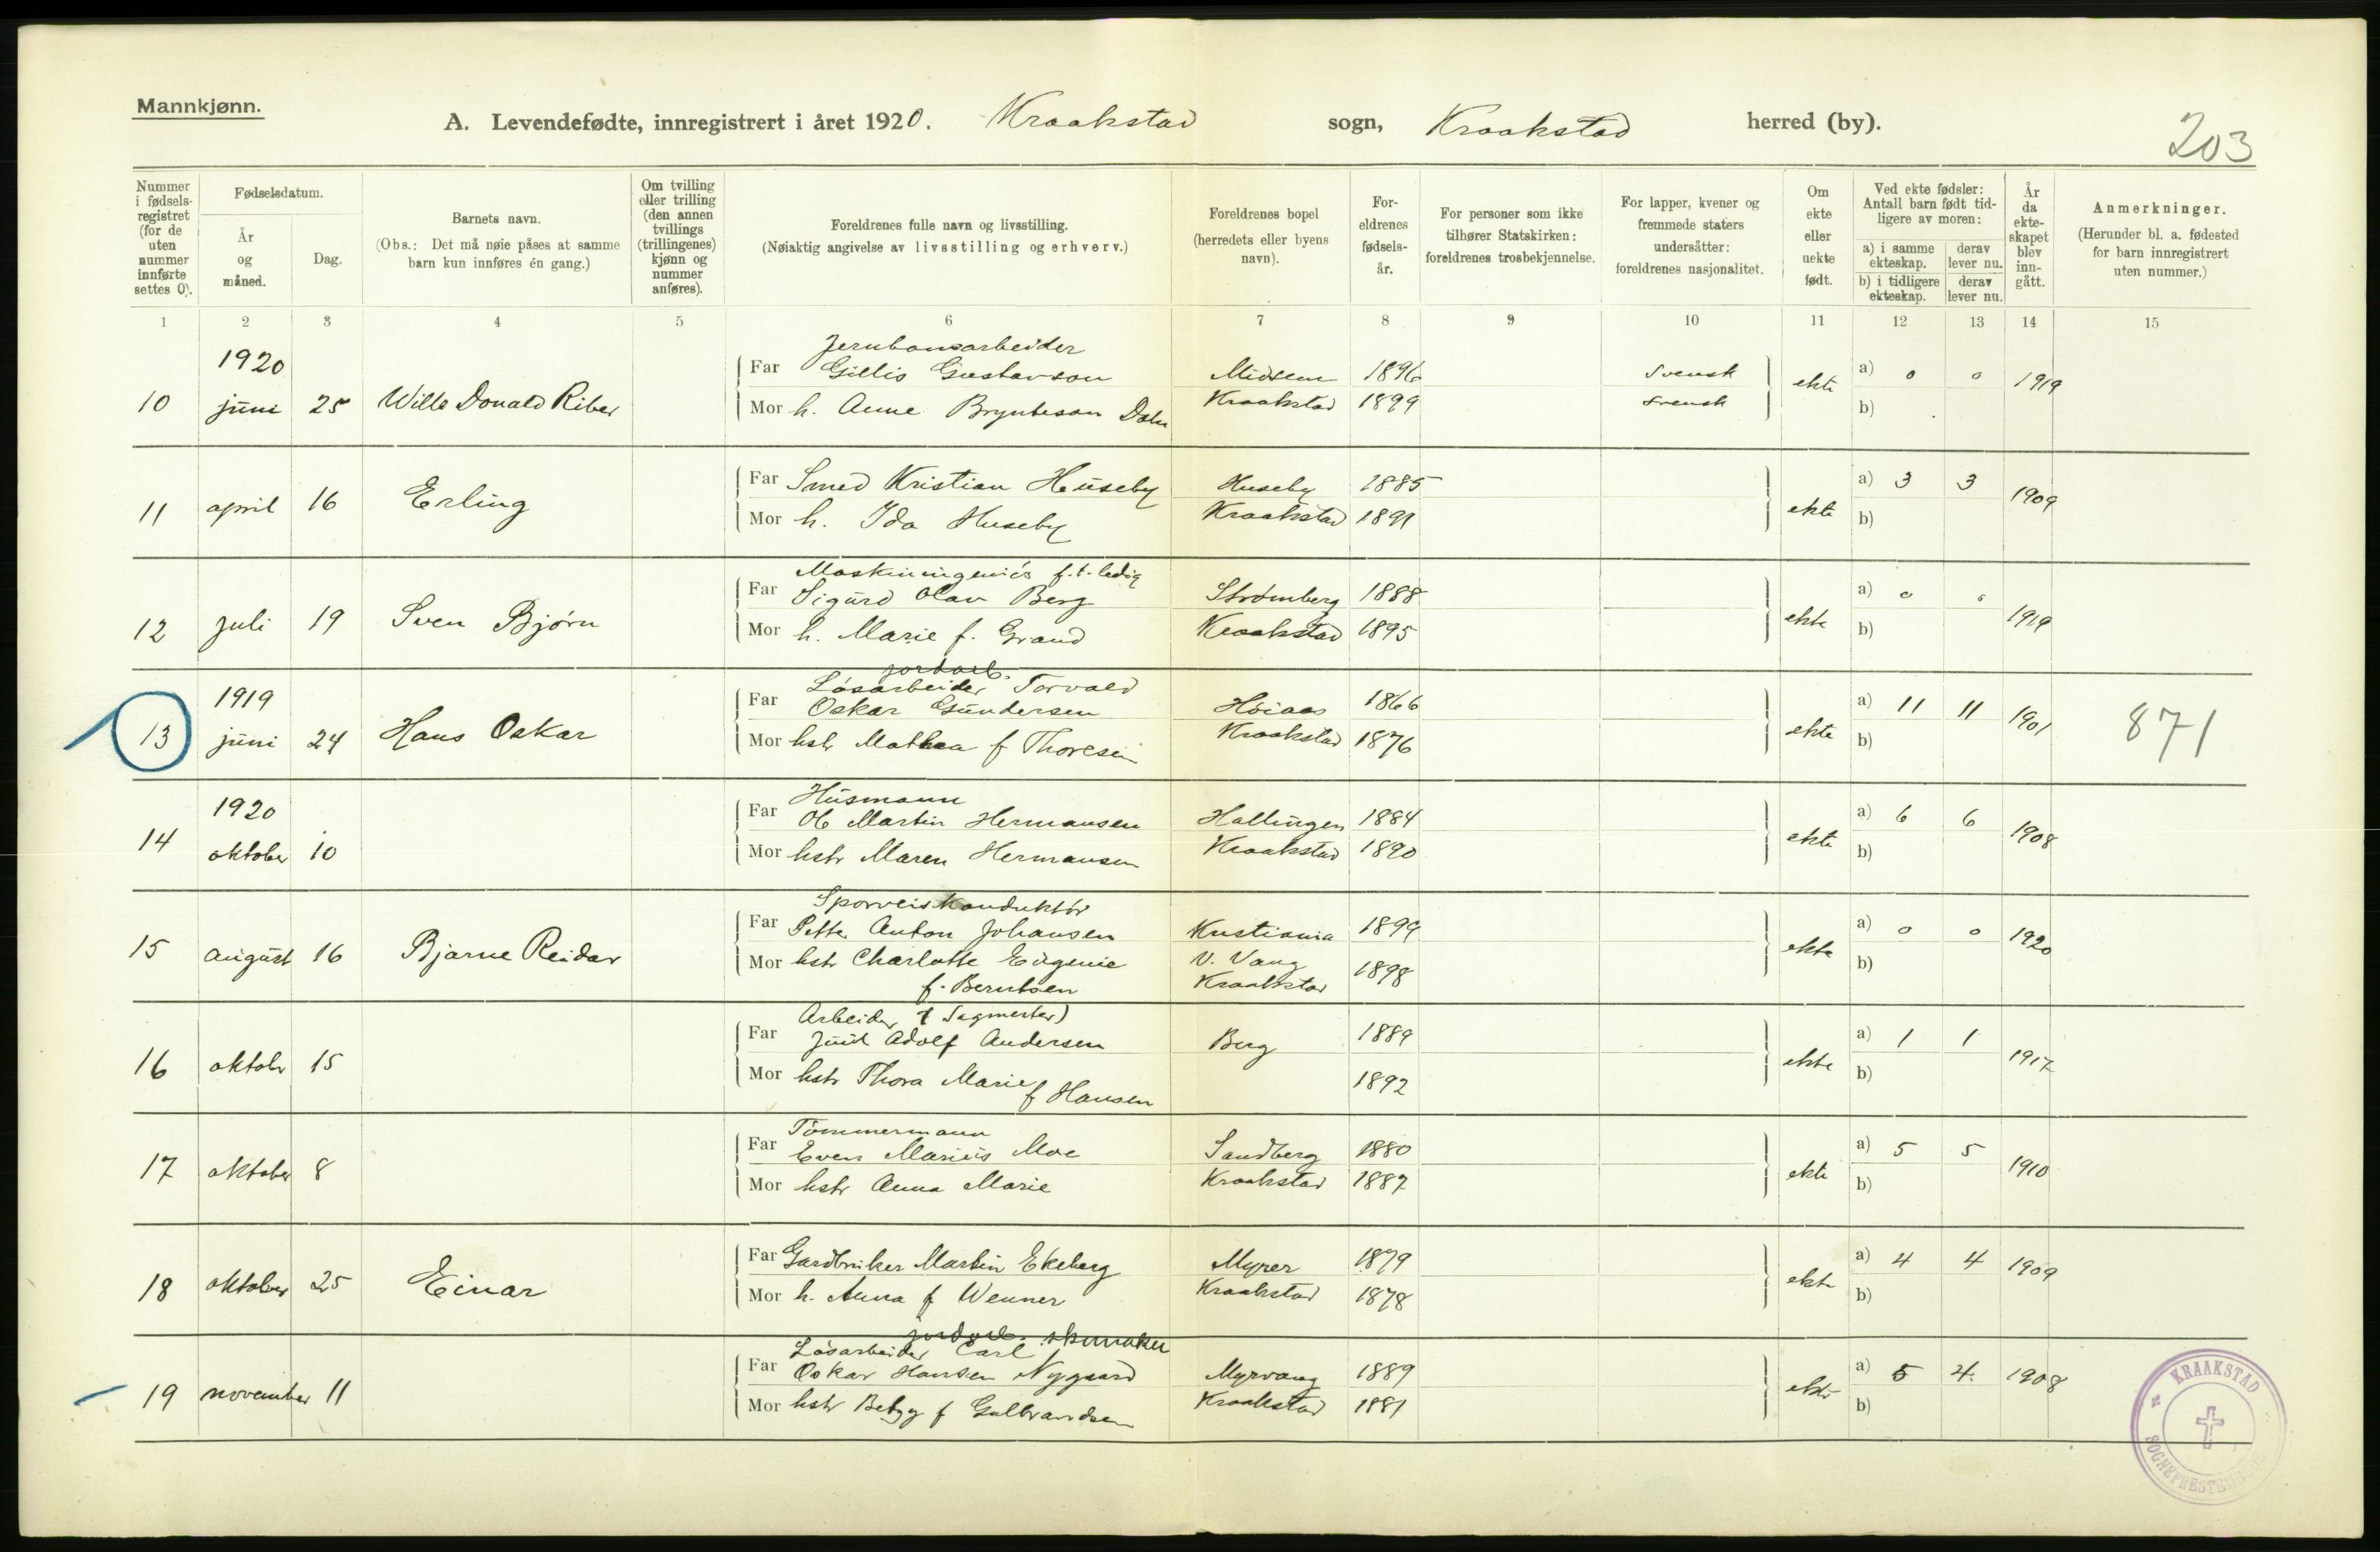 Mannkjønn.
A. Levendefødte, innregistrert i året 1920. Kraakstad sogn, Kraakstad herred (by).
203
Nummer i fødsels-registret (for de uten nummer innførte settes 0).
Fødselsdatum.
År og måned.
Dag.
Barnets navn.
(Obs.: Det må nøie påses at samme barn kun innføres én gang.)
Om tvilling eller trilling (den annen tvillings (trillingenes) kjønn og nummer anføres).
Foreldrenes fulle navn og livsstilling.
(Nøiaktig angivelse av livsstilling og erhverv.)
Foreldrenes bopel (herredets eller byens navn).
For-eldrenes fødsels-år.
For personer som ikke tilhører Statskirken: foreldrenes trosbekjennelse.
For lapper, kvener og fremmede staters undersåtter: foreldrenes nasjonalitet.
Om ekte eller uekte født.
Ved ekte fødsler: Antall barn født tid-ligere av moren:
a) i samme ekteskap.
derav lever nu.
b) i tidligere ekteskap.
derav lever nu.
År da ekte-skapet blev inn-gått.
Anmerkninger.
(Herunder bl. a. fødested for barn innregistrert uten nummer.)
1 2 3 4 5 6 7 8 9 10 11 12 13 14 15
1920
Jernbanearbeider
Far Gillis Gustavson 1896 Svensk a) 0 0
10 juni 25 Donald ekte 1919
Mor h. Anne Kraakstad 1899 Svensk b)
Far Smed Kristian Huseby Huseby 1885 a) 3 3
11 april 16 Erling ekte 1909
Mor h. Ida Huseby Kraakstad 1891 b)
Maskiningeniör f.t. ledig
Far Sigurd Olav Berg Strömberg 1888 a) 0 0
12 juli 19 Sven Bjørn ekte 1919
Mor h. Marie f. Grand Kraakstad 1895 b)
jordarb.
1919
Løsarbeider Torvald
Far Oskar Gundersen Höiaas 1866 a) 11 11
13 juni 24 Hans Oskar ekte 1901 871
Mor hstr Mathea f Thoresen Kraakstad 1876 b)
1920
Husmann
Far Ole Martin Hermansen Hallingen 1884 a) 6 6
14 oktober 10 ekte 1908
Mor hstr Maren Hermansen Kraakstad 1890 b)
Sporveiskonduktör
Far Petter Anton Johansen Kristiania 1899 a) 0 0
15 august 16 Bjarne Reidar ekte 1920
Mor hstr Charlotte Eugenie V. Vang 1898 b)
f. Berntsen Kraakstad
Arbeider
Far Juul Adolf Andersen Berg 1889 a) 1 1
16 oktobr 15 ekte 1917
Mor hstr Thora Marie 1892 b)
f Hansen
Tömmermann
Far Even Marius Moe Sandberg 1880 a) 5 5
17 oktober 8 ekte 1910
Mor hstr Anna Marie Kraakstad 1887 b)
Far Gardbruker Martin Ekeberg Myrer 1879 a) 4 4
18 oktober 25 Einar ekte 1909
Mor h. Anna f Wenner Kraakstad 1878 b)
jordarb. skomaker
Løsarbeider Carl
Far Oskar Hansen Nygaard Myrvang 1889 a) 5 4.
19 november 11 ekte 1908
Mor hstr f Gulbrandsen Kraakstad 1881 b)
KRAAKSTAD